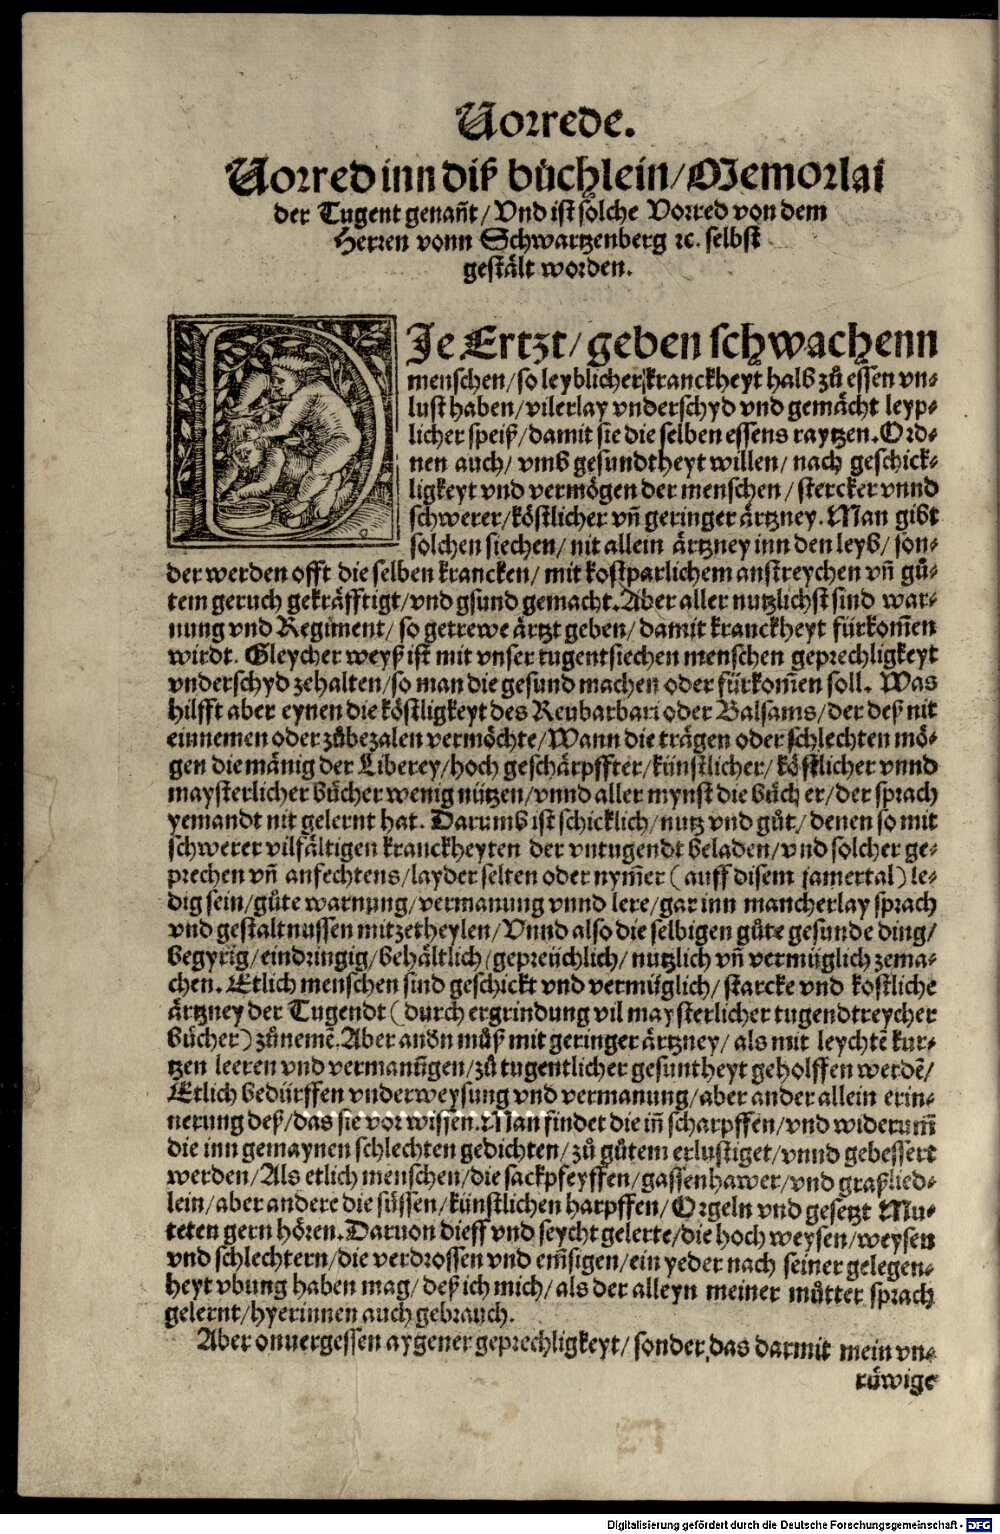 Vorrede.
Vorred inn diß büchlein/Memorial
der Tugent genañt/Vnd ist solche Vorred von dem
Herren vonn Schwartzenberg ꝛc. selbst
gestält worden.
DJe Ertzt/geben schwachenn
menschen/so leyblicher kranckheyt halb zů essen vn⸗
lust haben/vilerlay vnderschyd vnd gemächt leyp⸗
licher speiß/damit sie die selben essens raytzen. Ord⸗
nen auch/vmb gesundtheyt willen/nach geschick⸗
ligkeyt vnd vermögen der menschen/stercker vnnd
schwerer/köstlicher vñ geringer ärtzney. Man gibt
solchen siechen/nit allein ärtzney inn den leyb/son⸗
der werden offt die selben krancken/mit kostparlichem anstreychen vñ gů⸗
tem geruch gekräfftigt/vnd gsund gemacht. Aber aller nutzlichst sind war⸗
nung vnd Regiment/so getrewe ärtzt geben/damit kranckheyt fürkom̃en
wirdt. Gleycher weyß ist mit vnser tugentsiechen menschen geprechligkeyt
vnderschyd zehalten/so man die gesund machen oder fürkom̃en soll. Was
hilfft aber eynen die köstligkeyt des Reubarbari oder Balsams/der deß nit
einnemen oder zůbezalen vermöchte/Wann die trägen oder schlechten mö⸗
gen die mänig der Liberey/hoch geschärpffter/künstlicher/köstlicher vnnd
maysterlicher bücher wenig nützen/vnnd aller mynst die bücher/der sprach
yemandt nit gelernt hat. Darumb ist schicklich/nutz vnd gůt/denen so mit
schwerer vilfältigen kranckheyten der vntugendt beladen/vnd solcher ge⸗
prechen vñ anfechtens/layder selten oder nym̃er (auff disem jamertal) le⸗
dig sein/gůte warnung/vermanung vnnd lere/gar inn mancherlay sprach
vnd gestaltnussen mitzetheylen/Vnnd also die selbigen gůte gesunde ding/
begyrig/eindringig/behältlich/gepreüchlich/nutzlich vñ vermüglich zema⸗
chen. Etlich menschen sind geschickt vnd vermüglich/starcke vnd kostliche
ärtzney der Tugendt (durch ergrindung vil maysterlicher tugendtreycher
bücher) zůnemẽ. Aber andñ můß mit geringer ärtzney/als mit leychtẽ kur⸗
tzen leeren vnd vermanũgen/zů tugentlicher gesuntheyt geholffen werdẽ/
Etlich bedürffen vnderweysung vnd vermanung/aber ander allein erin⸗
nerung deß/das sie vor wissen. Man findet die iñ scharpffen/vnd widerum̃
die inn gemaynen schlechten gedichten/zů gůtem erlustiget/vnnd gebessert
werden/Als etlich menschen/die sackpfeyffen/gassenhawer/vnd graßlied⸗
lein/aber andere die süssen/künstlichen harpffen/Orgeln vnd gesetzt Mu⸗
teten gern hören. Daruon dieff vnd seycht gelerte/die hoch weysen/weysen
vnd schlechtern/die verdrossen vnd em̃sigen/ein yeder nach seiner gelegen⸗
heyt vbung haben mag/deß ich mich/als der alleyn meiner můtter sprach
gelernt/hyerinnen auch gebrauch.
Aber onuergessen aygener geprechligkeyt/sonder, das darmit mein vn⸗
růwige
Digitalisierung gefördert durch die Deutsche Forschungsgemeinschaft - DFG